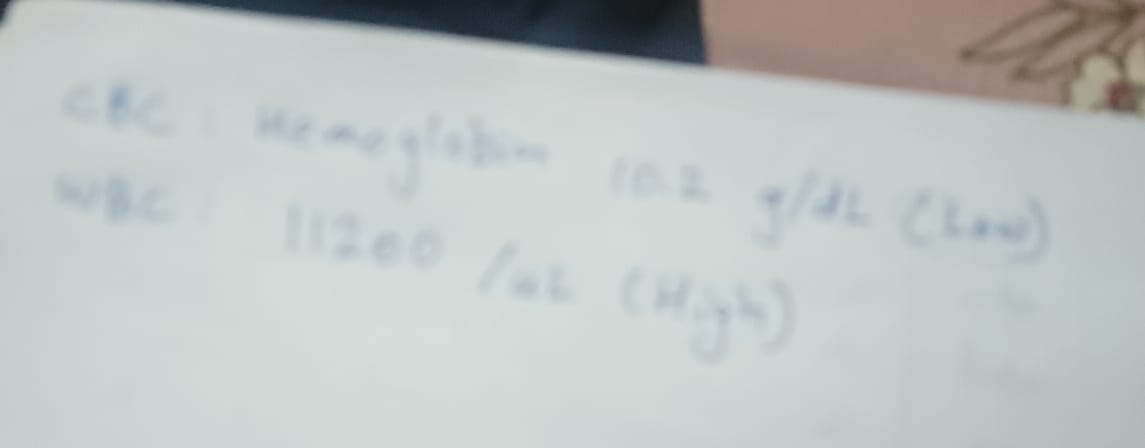 CBC : Hemoglobin 10.2 g/dL (Low)
WBC : 11200 /uL (High)